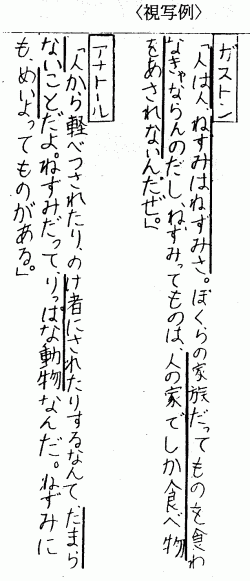 〈視写例〉
ガストン
「人は人、ねずみはねずみさ。ぼくらの家族だってものを食わ
なきゃならんのだし、ねずみってものは、人の家でしか食べ物
をあされないんだぜ。」
アナトール
「人から軽べつされたり、のけ者にされたりするなんて、たまら
ないことだよ。ねずみだって、りっぱな動物なんだ。ねずみに
も、めいよってものがある。」